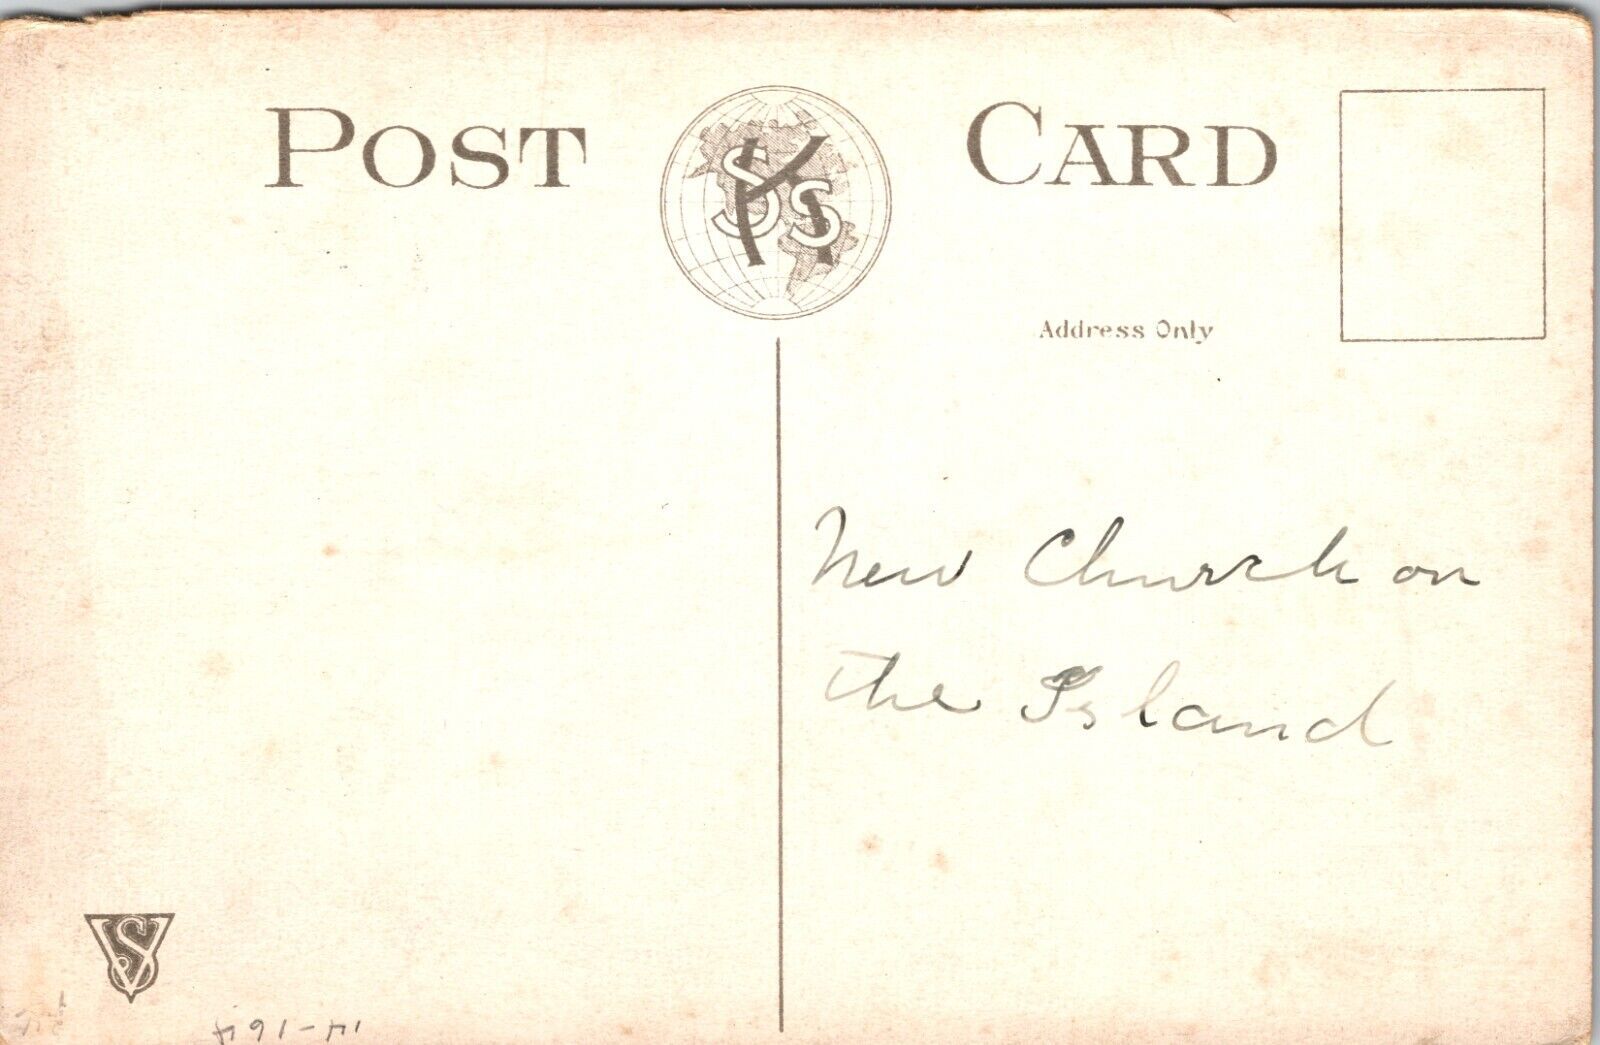 POST CARD
SKS
Address Only
New Church on
the Island
VSO
14-164